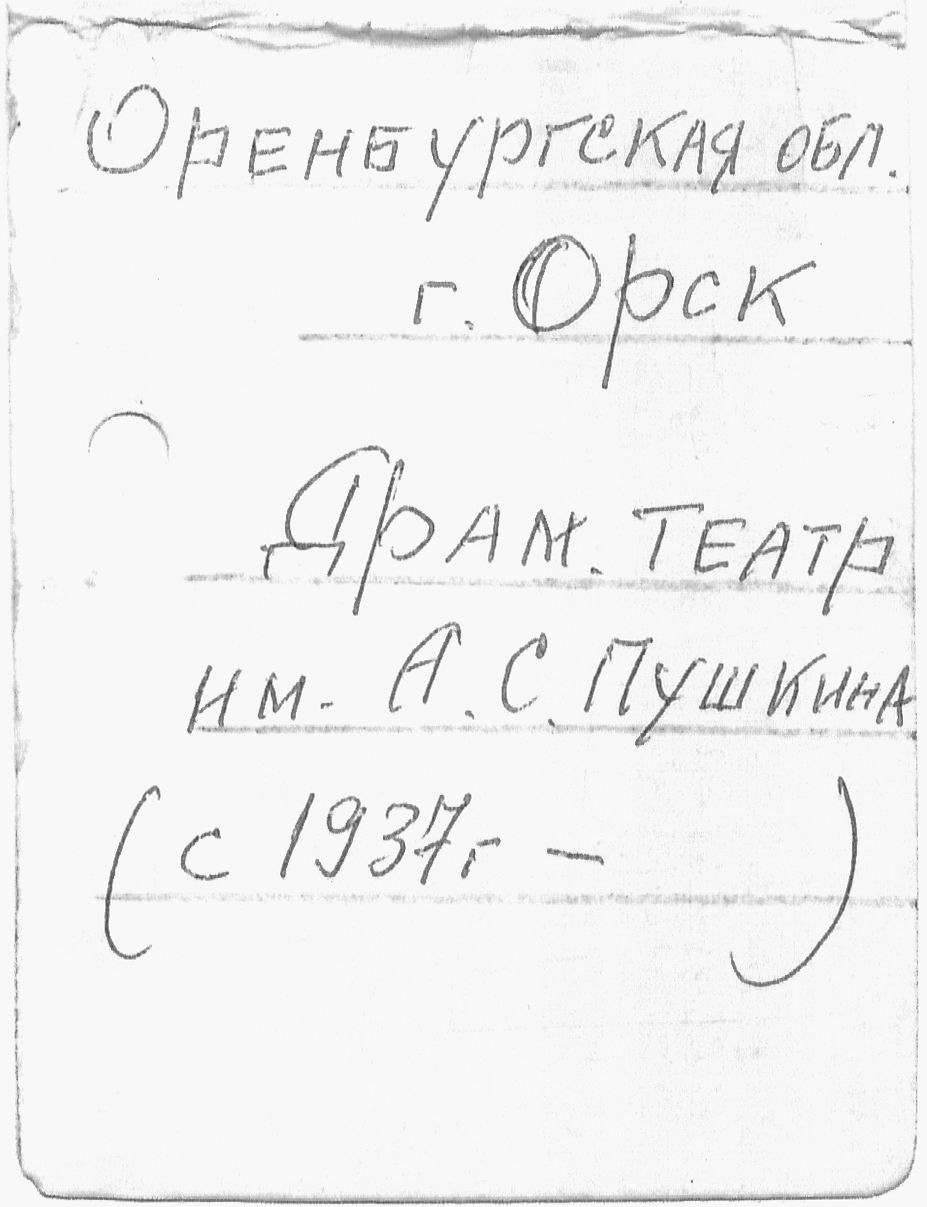 Оренбургская обл.
г. Орск
Драм. театр
им. А.С. Пушкина
(с 1937г – )